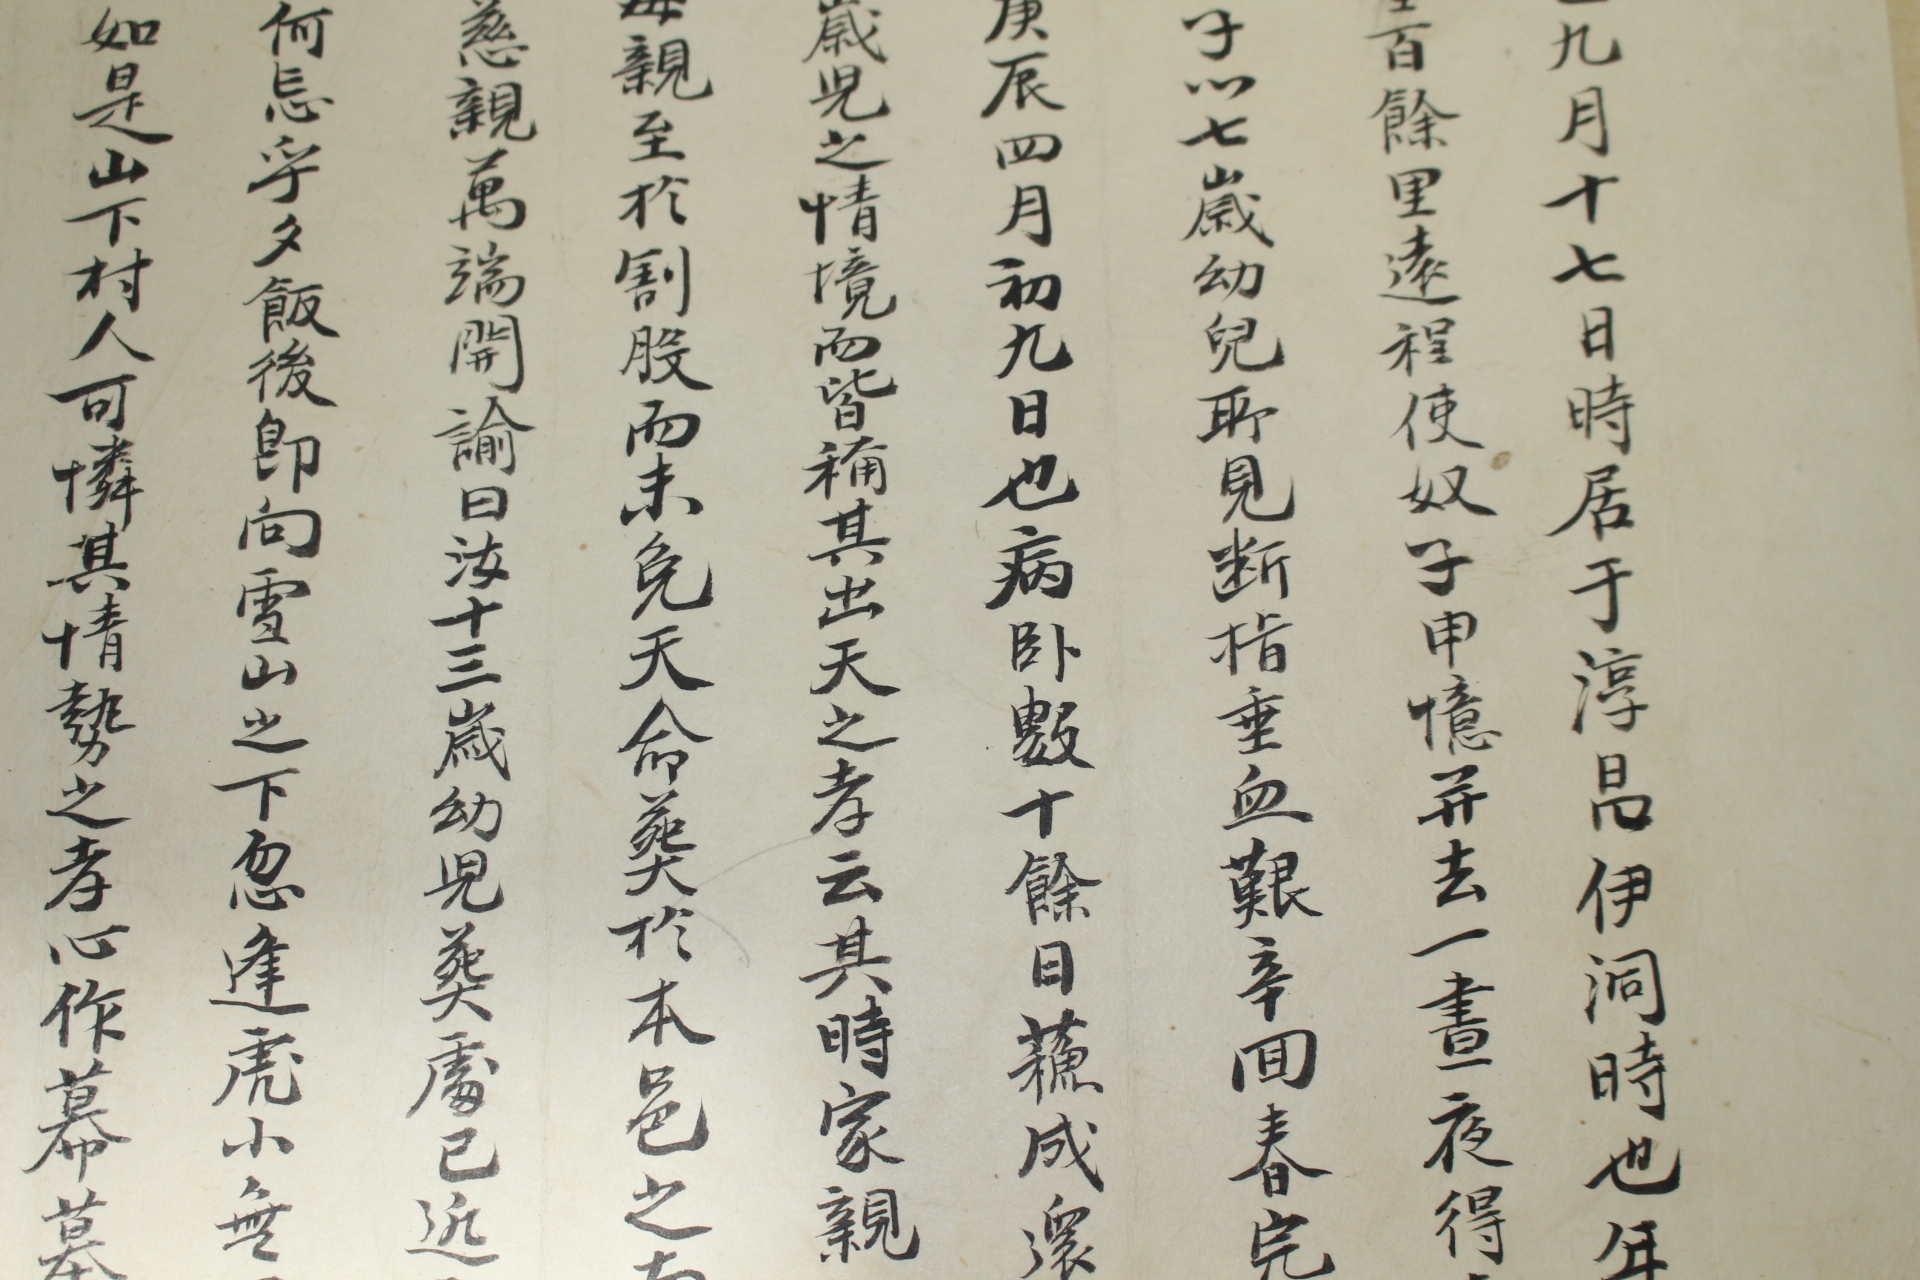 九月十七日時居于淳昌伊洞時也年
百餘里遠程使奴子申憶并去一晝夜得
子以七歲幼兒聊見断指垂血艱辛回春完
庚辰四月初九日也病卧數十餘日蘓成還
歲児之情境而皆稱其出天之孝云其時家親
母親至於割股而未免天命葬於本邑之
慈親萬端開諭曰汝十三歲幼児葬處已近
何忘乎夕飯後即向雪山之下忽逢虎小無
如是山下村人可憐其情勢之孝心作幕墓